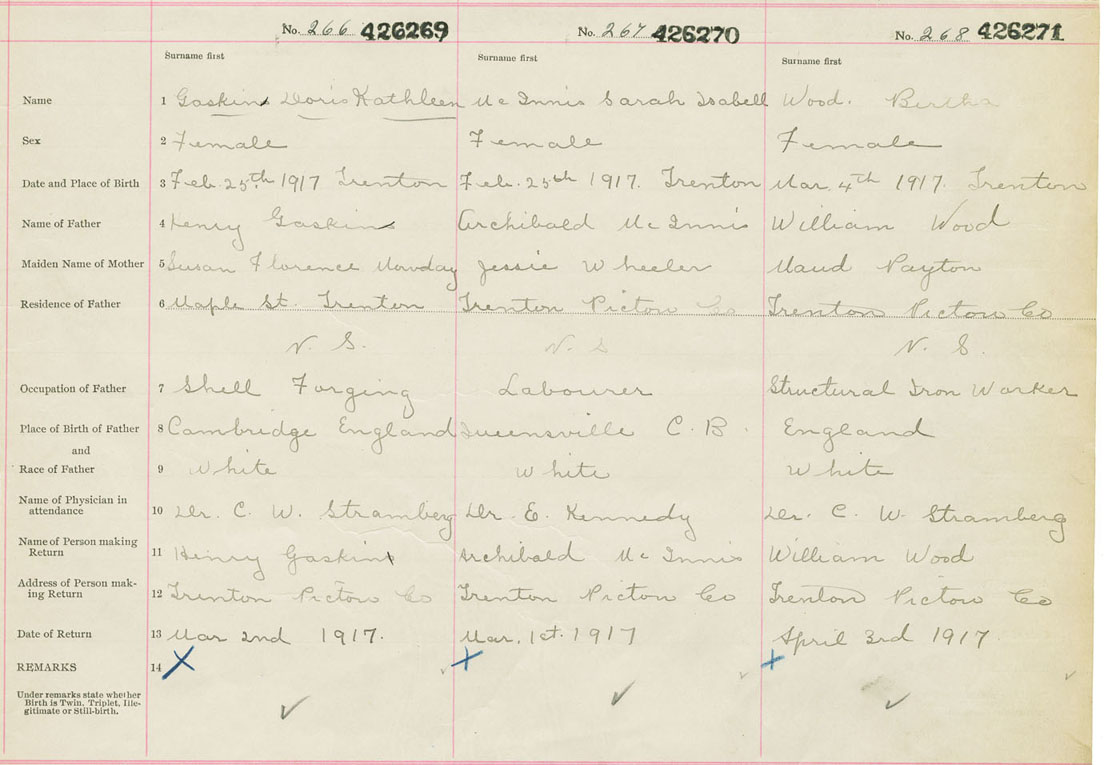 No. 266 426269 No. 267 426270 No. 268 426271
Surname first Surname first Surname first
Name 1 Gaskins Doris Kathleen Mc Innis Sarah Isabell Wood. Bertha
Sex 2 Female Female Female
Date and Place of Birth 3 Feb. 25th 1917 Trenton Feb. 25th 1917. Trenton Mar. 4th 1917. Trenton
Name of Father 4 Henry Gaskins Archibald Mc Innis William Wood
Maiden Name of Mother 5 Susan Florence Mowday Jessie Wheeler Maud Payton
Residence of Father 6 Maple St. Trenton Trenton Pictou Co Trenton Pictou Co
N. S. N. S N. S.
Occupation of Father 7 Shell Forging Labourer Structural Iron Worker
Place of Birth of Father 8 Cambridge England Queensville C. B. England
and
Race of Father 9 White White White
Name of Physician in
attendance 10 Dr. C. W. Stramberg Dr. E. Kennedy Dr. C. W. Stramberg
Name of Person making
Return 11 Henry Gaskins Archibald Mc Innis William Wood
Address of Person mak-
ing Return 12 Trenton Pictou Co Trenton Pictou Co Trenton Pictou Co
Date of Return 13 Mar 2nd 1917. Mar. 1st. 1917 April 3rd 1917
REMARKS 14
Under remarks state whether
Birth is Twin, Triplet, Ille-
gitimate or Still-birth.